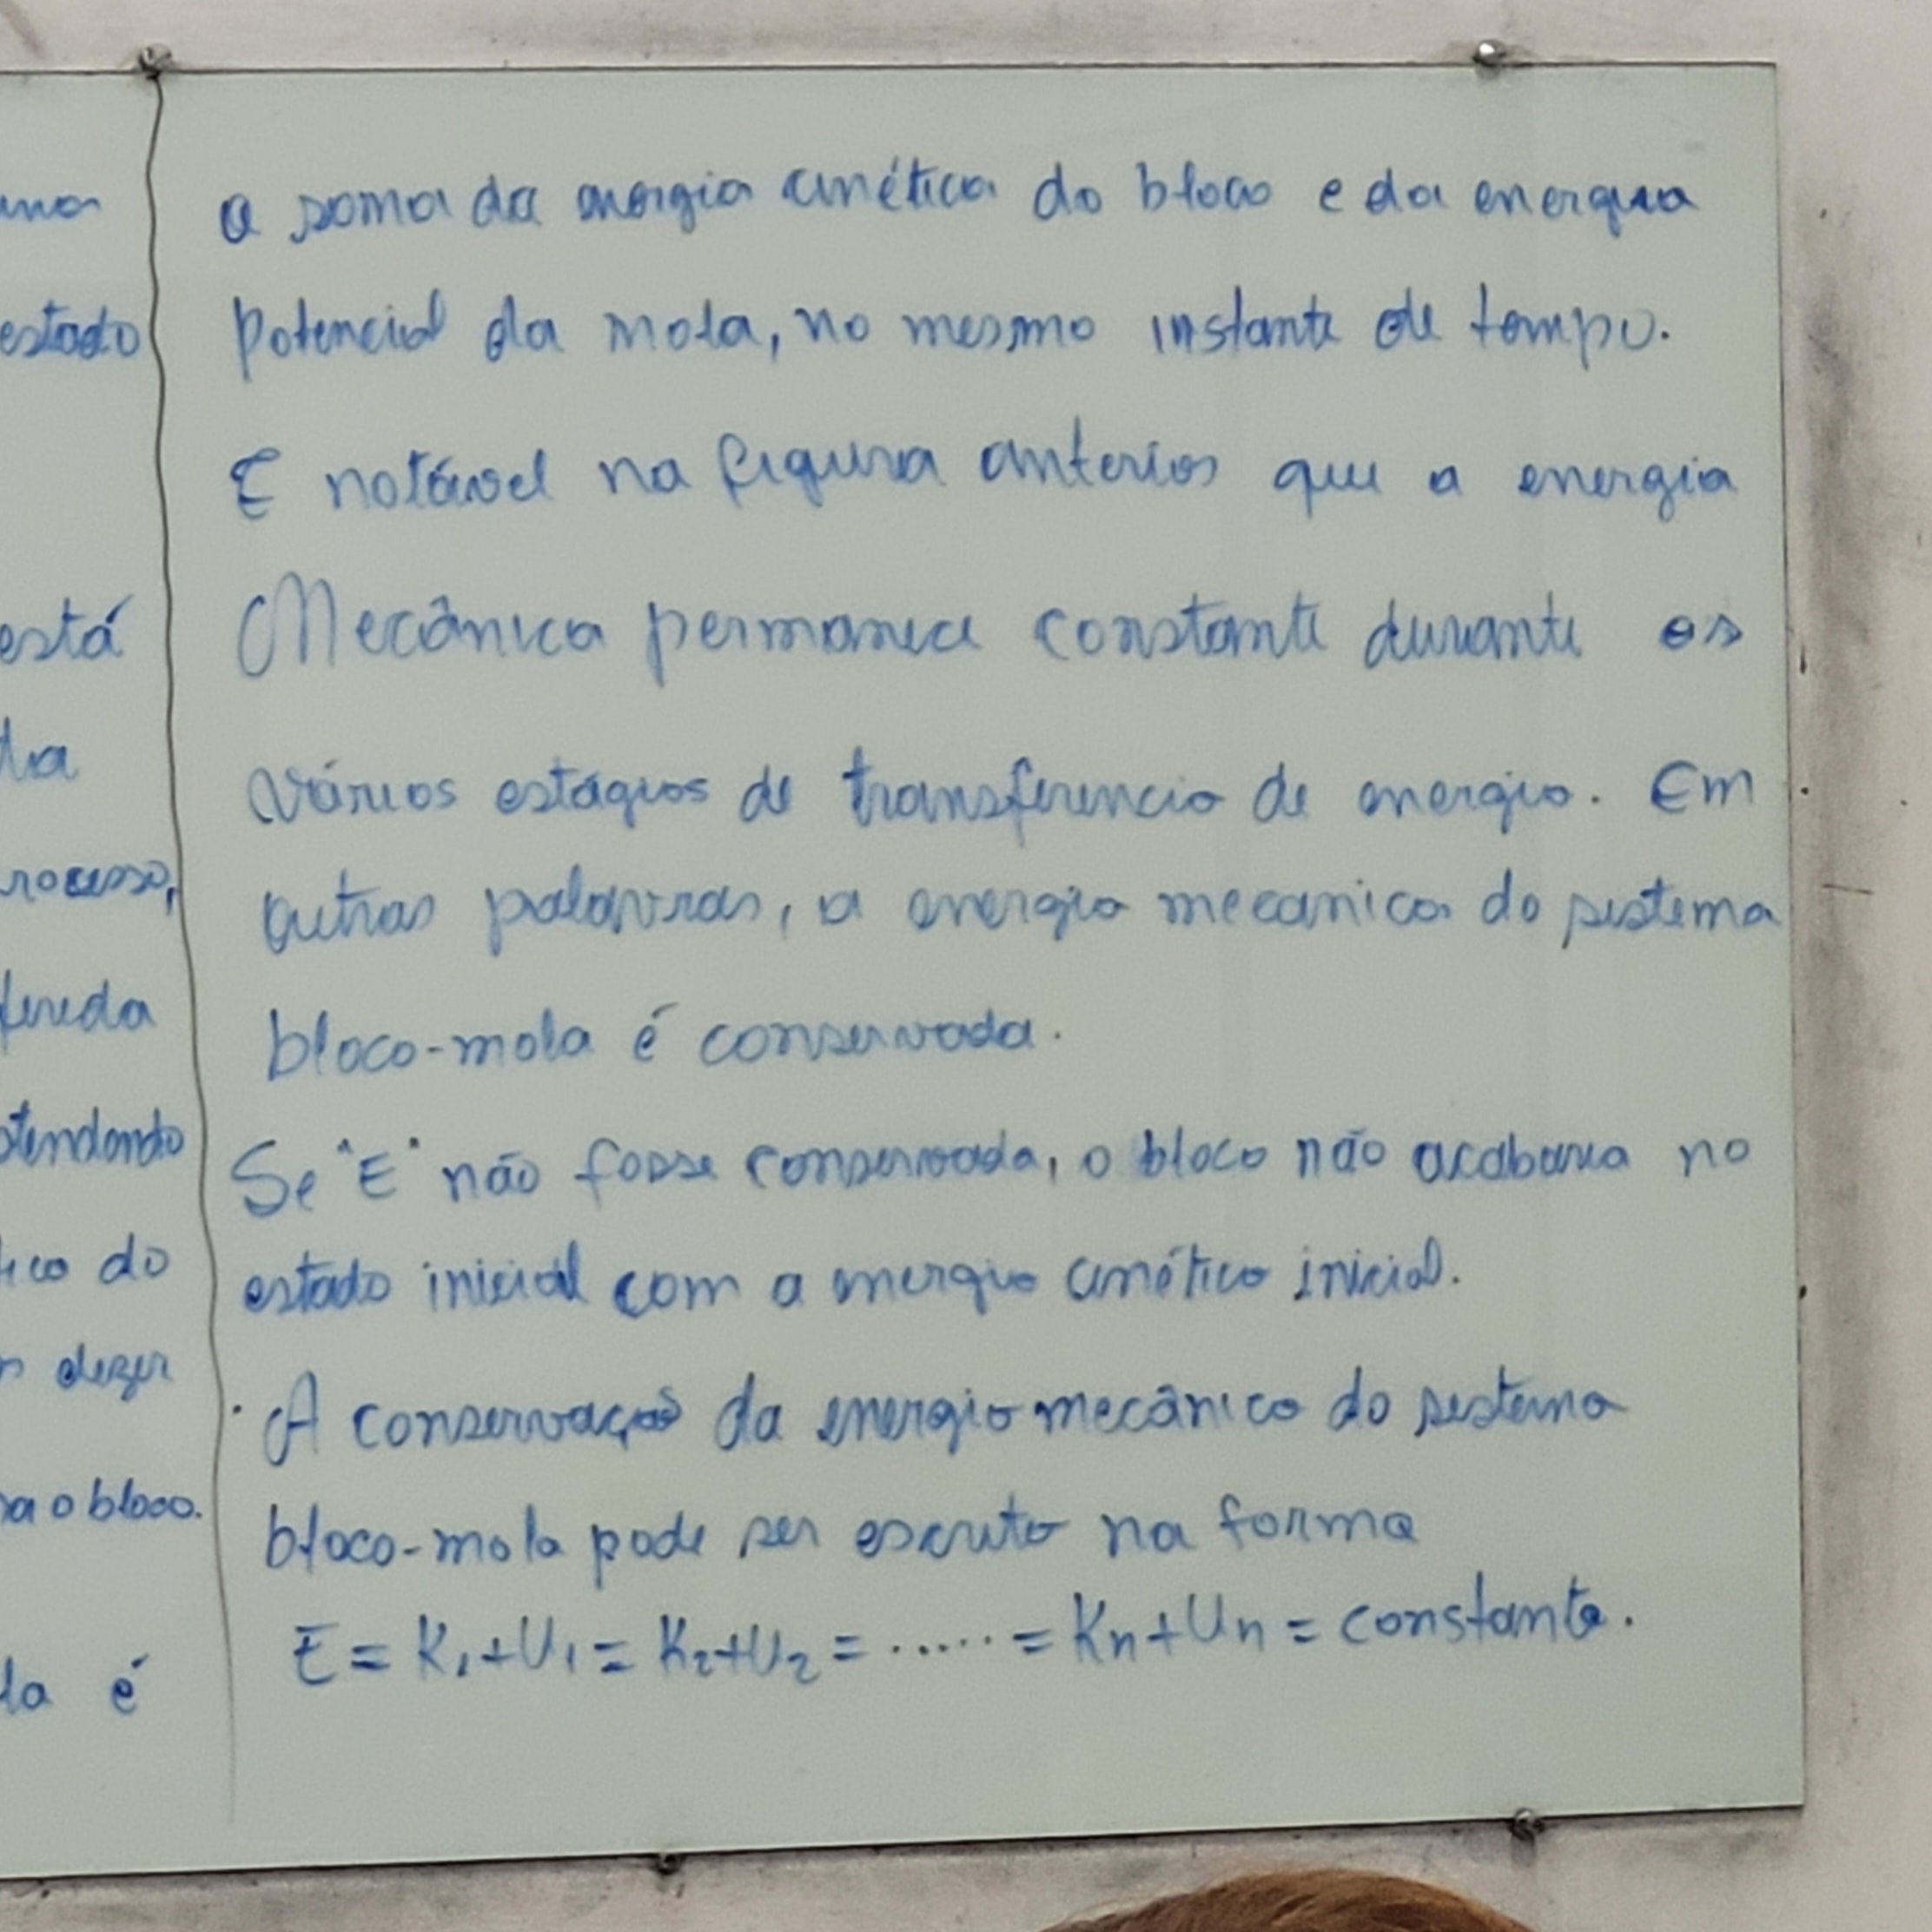 a soma da energia cinética do bloco e da energia
potencial da mola, no mesmo instante de tempo.
E notável na figura anterior que a energia
Mecânica permanece constante durante os
vários estágios de transferencia de energia. Em
outras palavras, a energia mecanica do sistema
bloco-mola é conservada.
Se "E" não fosse conservada, o bloco não acabaria no
estado inicial com a energia cinética inicial.
. A conservação da energia mecânica do sistema
bloco-mola pode ser escrito na forma
E = K₁+U₁ = K₂+U₂ = ..... = Kn+Un = constante.
estado
está
da
rocesso,
ferida
do
dizer
a o bloco.
la é